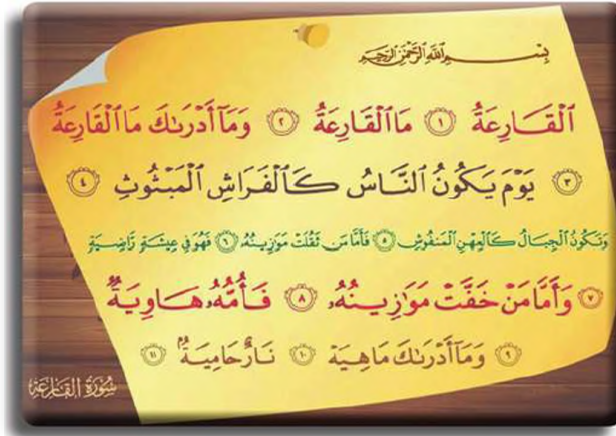 بِسْمِ اللَّهِ الرَّحْمَٰنِ الرَّحِيمِ
ٱلْقَارِعَةُ ١ مَا ٱلْقَارِعَةُ ٢ وَمَآ أَدْرَىٰكَ مَا ٱلْقَارِعَةُ
٣ يَوْمَ يَكُونُ ٱلنَّاسُ كَٱلْفَرَاشِ ٱلْمَبْثُوثِ ٤
وَتَكُونُ ٱلْجِبَالُ كَٱلْعِهْنِ ٱلْمَنفُوشِ ٥ فَأَمَّا مَن ثَقُلَتْ مَوَٰزِينُهُۥ ٦ فَهُوَ فِى عِيشَةٍ رَّاضِيَةٍ
٧ وَأَمَّا مَنْ خَفَّتْ مَوَٰزِينُهُۥ ٨ فَأُمُّهُۥ هَاوِيَةٌ
٩ وَمَآ أَدْرَىٰكَ مَا هِيَهْ ١٠ نَارٌ حَامِيَةٌۢ ١١
سُورَةُ القَارِعَةِ